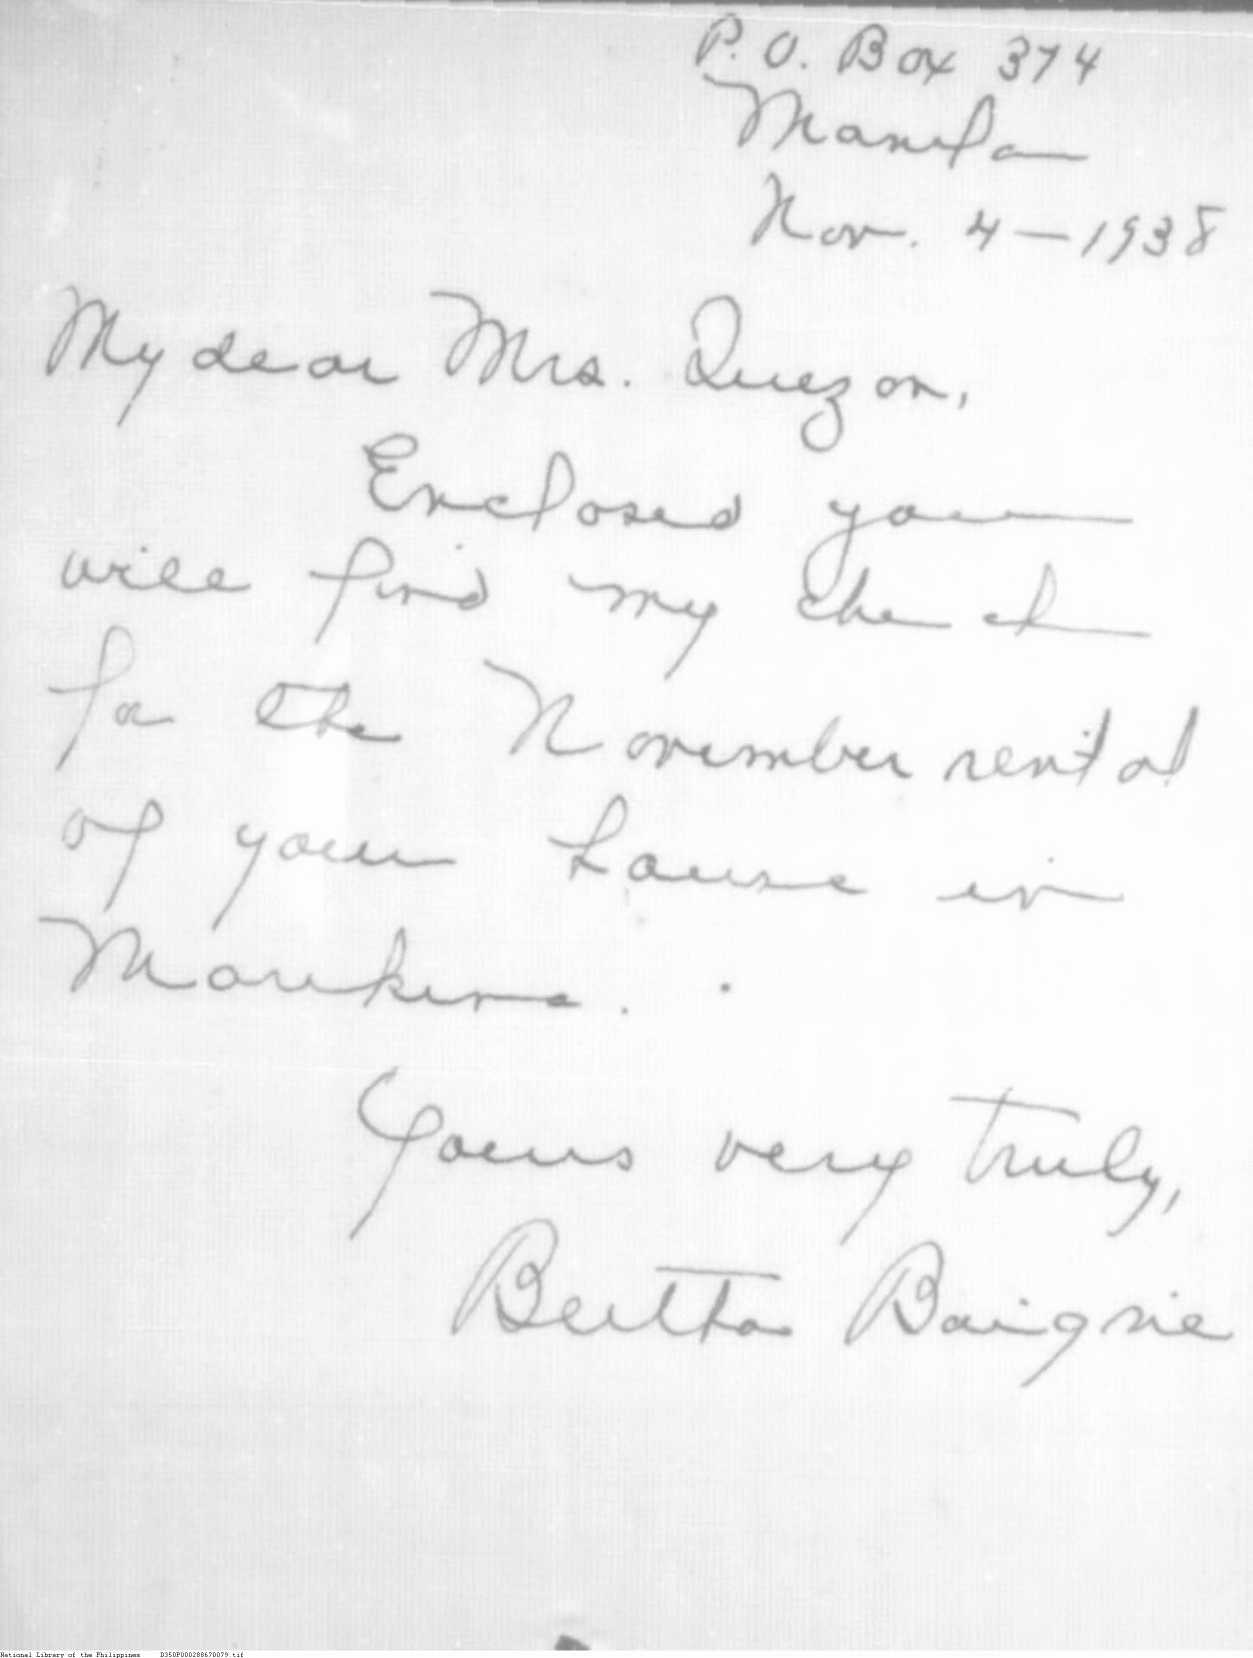 P. O. Box 374
Manila
Nov. 4 — 1938
My dear Mrs. Quezon,
Enclosed you
will find my check
for the November rental
of your house in
Marikina.
Yours very truly,
Bertha Baigrie
National Library of the Philippines D350P000288670079.tif